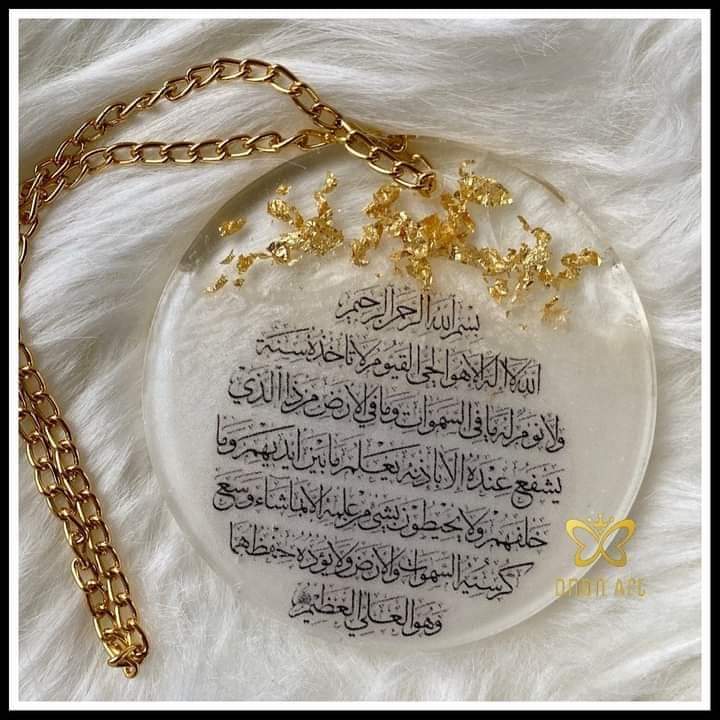 بسم الله الرحمن الرحيم
الله لا اله الا هو الحي القيوم لا تاخذه سنة
ولا نوم له ما في السموات وما في الارض من ذا الذي
يشفع عنده الا باذنه يعلم ما بين ايديهم وما
خلفهم ولا يحيطون بشيء من علمه الا بما شاء وسع
كرسيه السموات والارض ولا يؤده حفظهما
وهو العلي العظيم